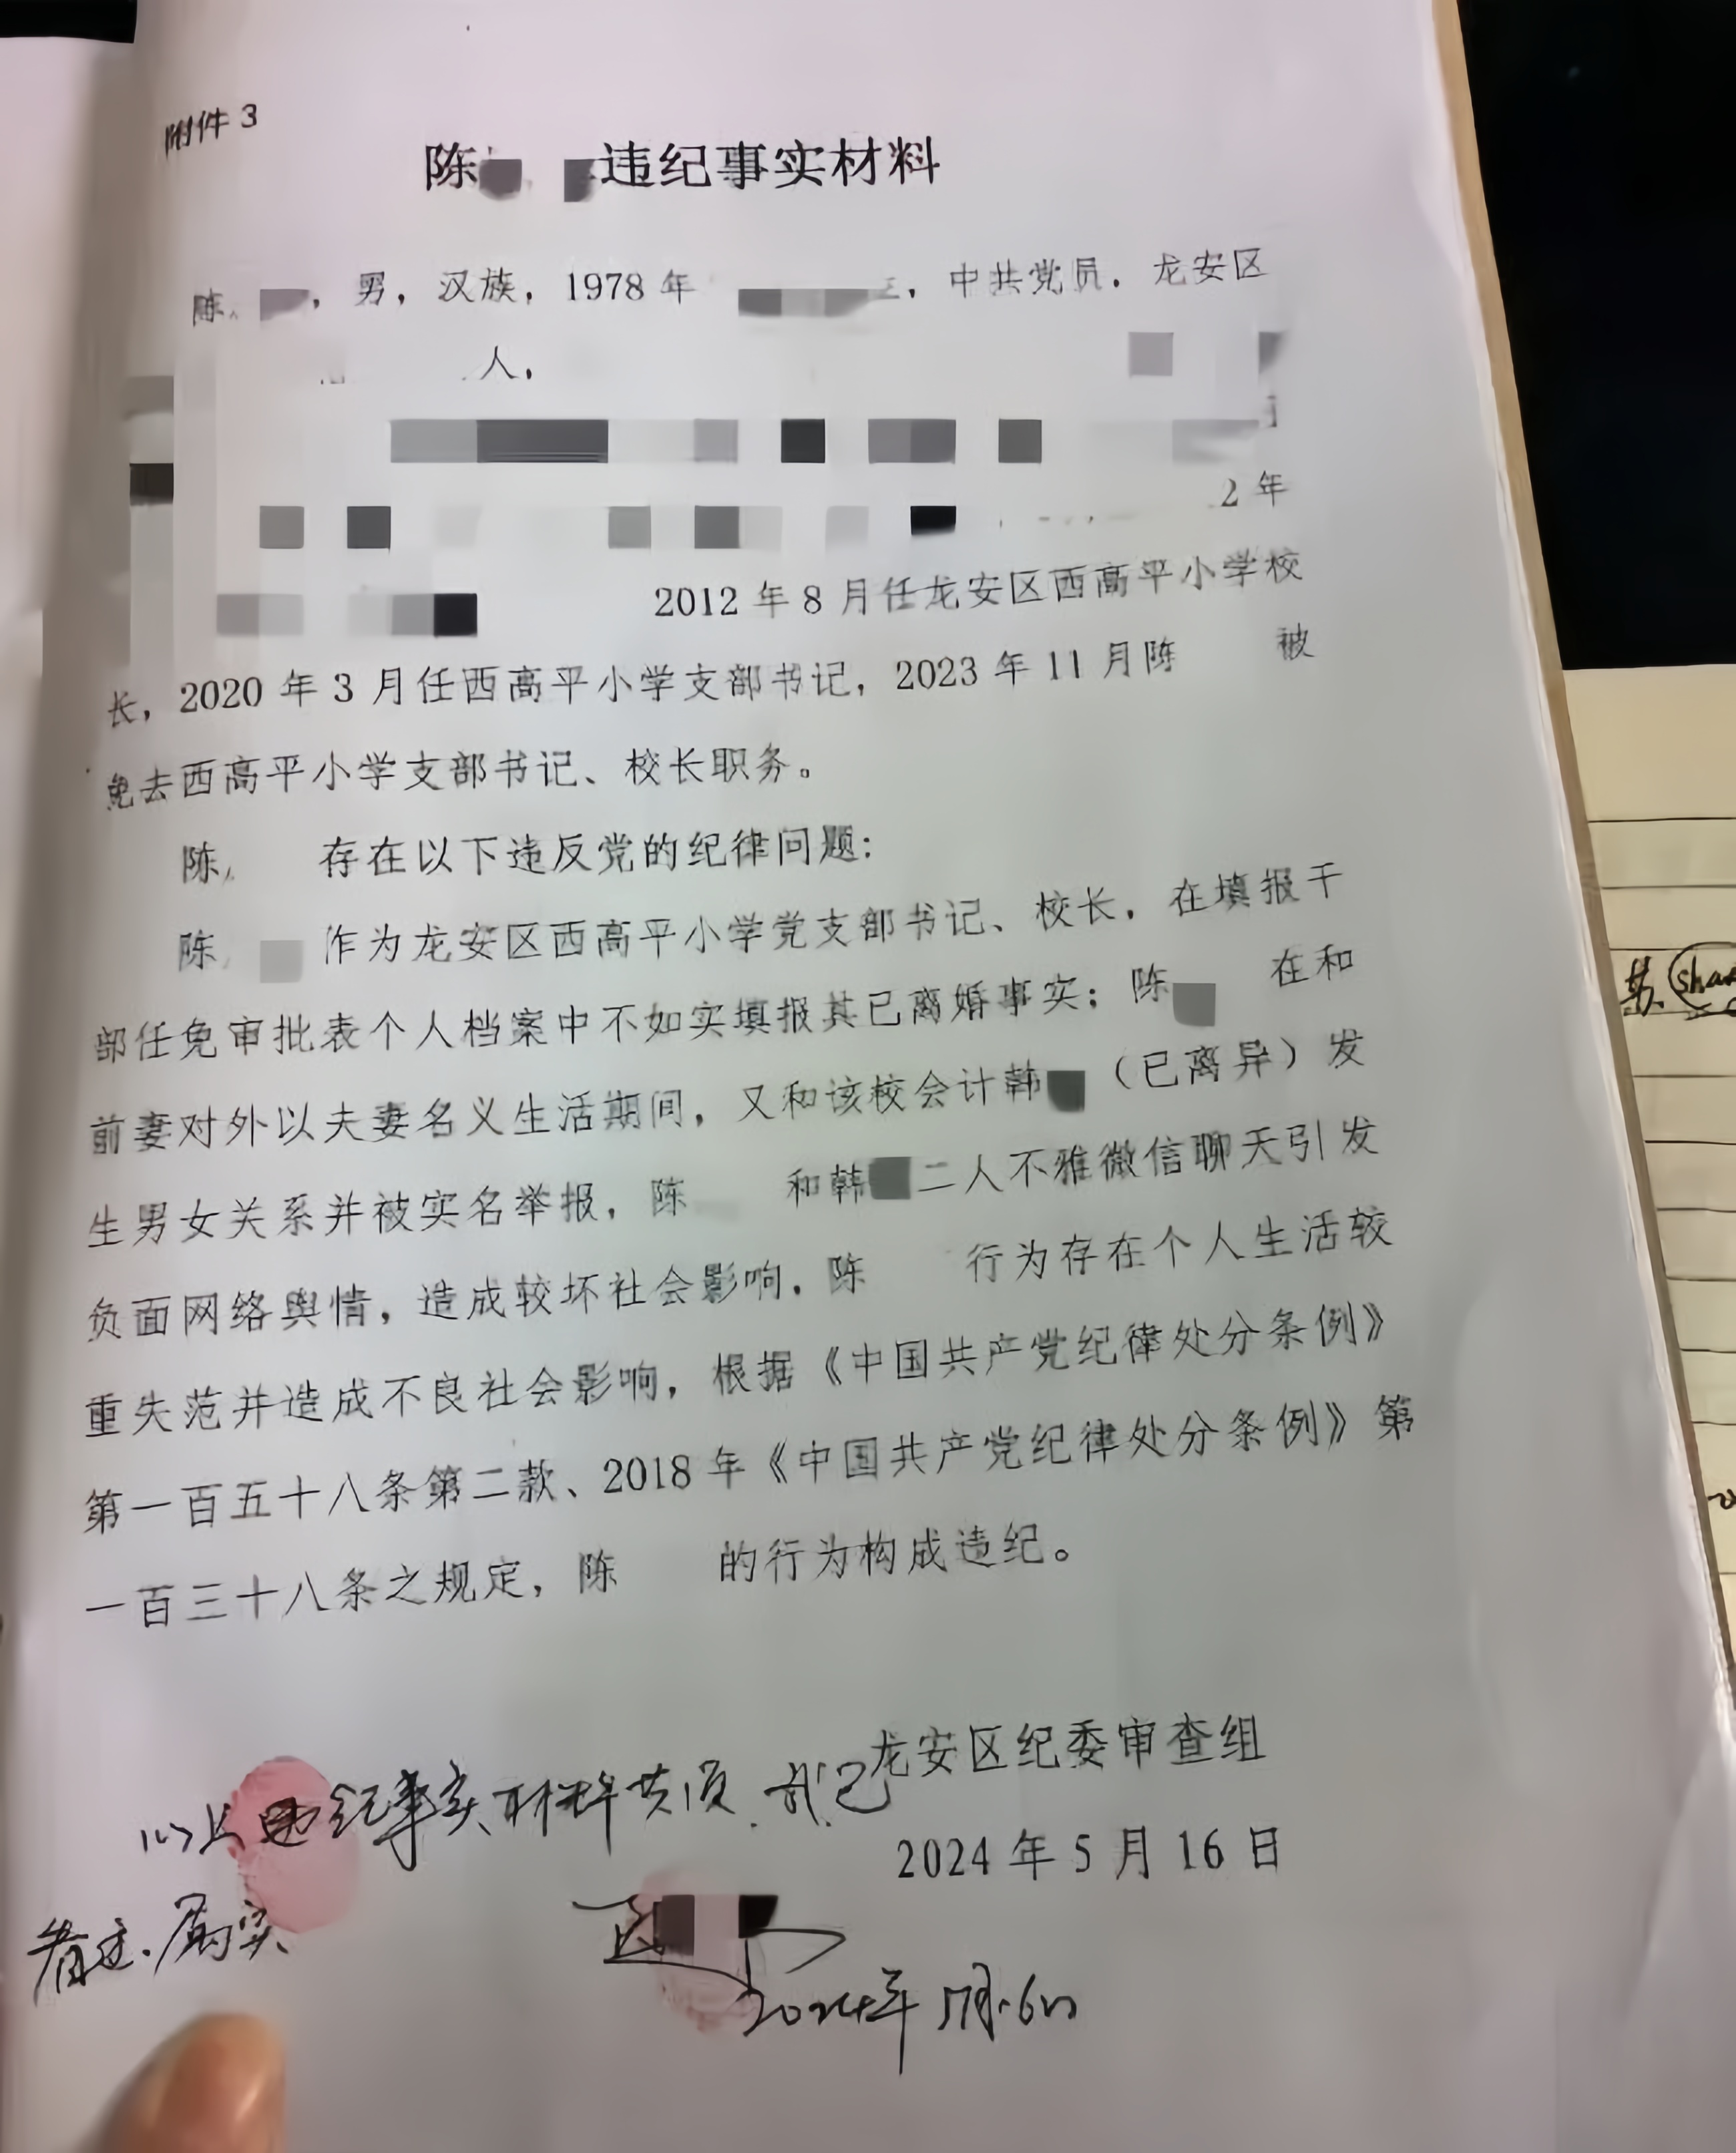 附件3
陈 违纪事实材料
陈 ，男，汉族，1978年 ，中共党员，龙安区
人，
2年
2012年8月任龙安区西高平小学校
长，2020年3月任西高平小学支部书记，2023年11月陈 被
免去西高平小学支部书记、校长职务。
陈 存在以下违反党的纪律问题：
陈 作为龙安区西高平小学党支部书记、校长，在填报干
部任免审批表个人档案中不如实填报其已离婚事实；陈 在和
前妻对外以夫妻名义生活期间，又和该校会计韩 （已离异）发
生男女关系并被实名举报，陈 和韩 二人不雅微信聊天引发
负面网络舆情，造成较坏社会影响，陈 行为存在个人生活较
重失范并造成不良社会影响，根据《中国共产党纪律处分条例》
第一百五十八条第二款、2018年《中国共产党纪律处分条例》第
一百三十八条之规定，陈 的行为构成违纪。
龙安区纪委审查组
以上违纪事实材料共1页，我已
2024年5月16日
看过，属实
2024年5月16日
苏